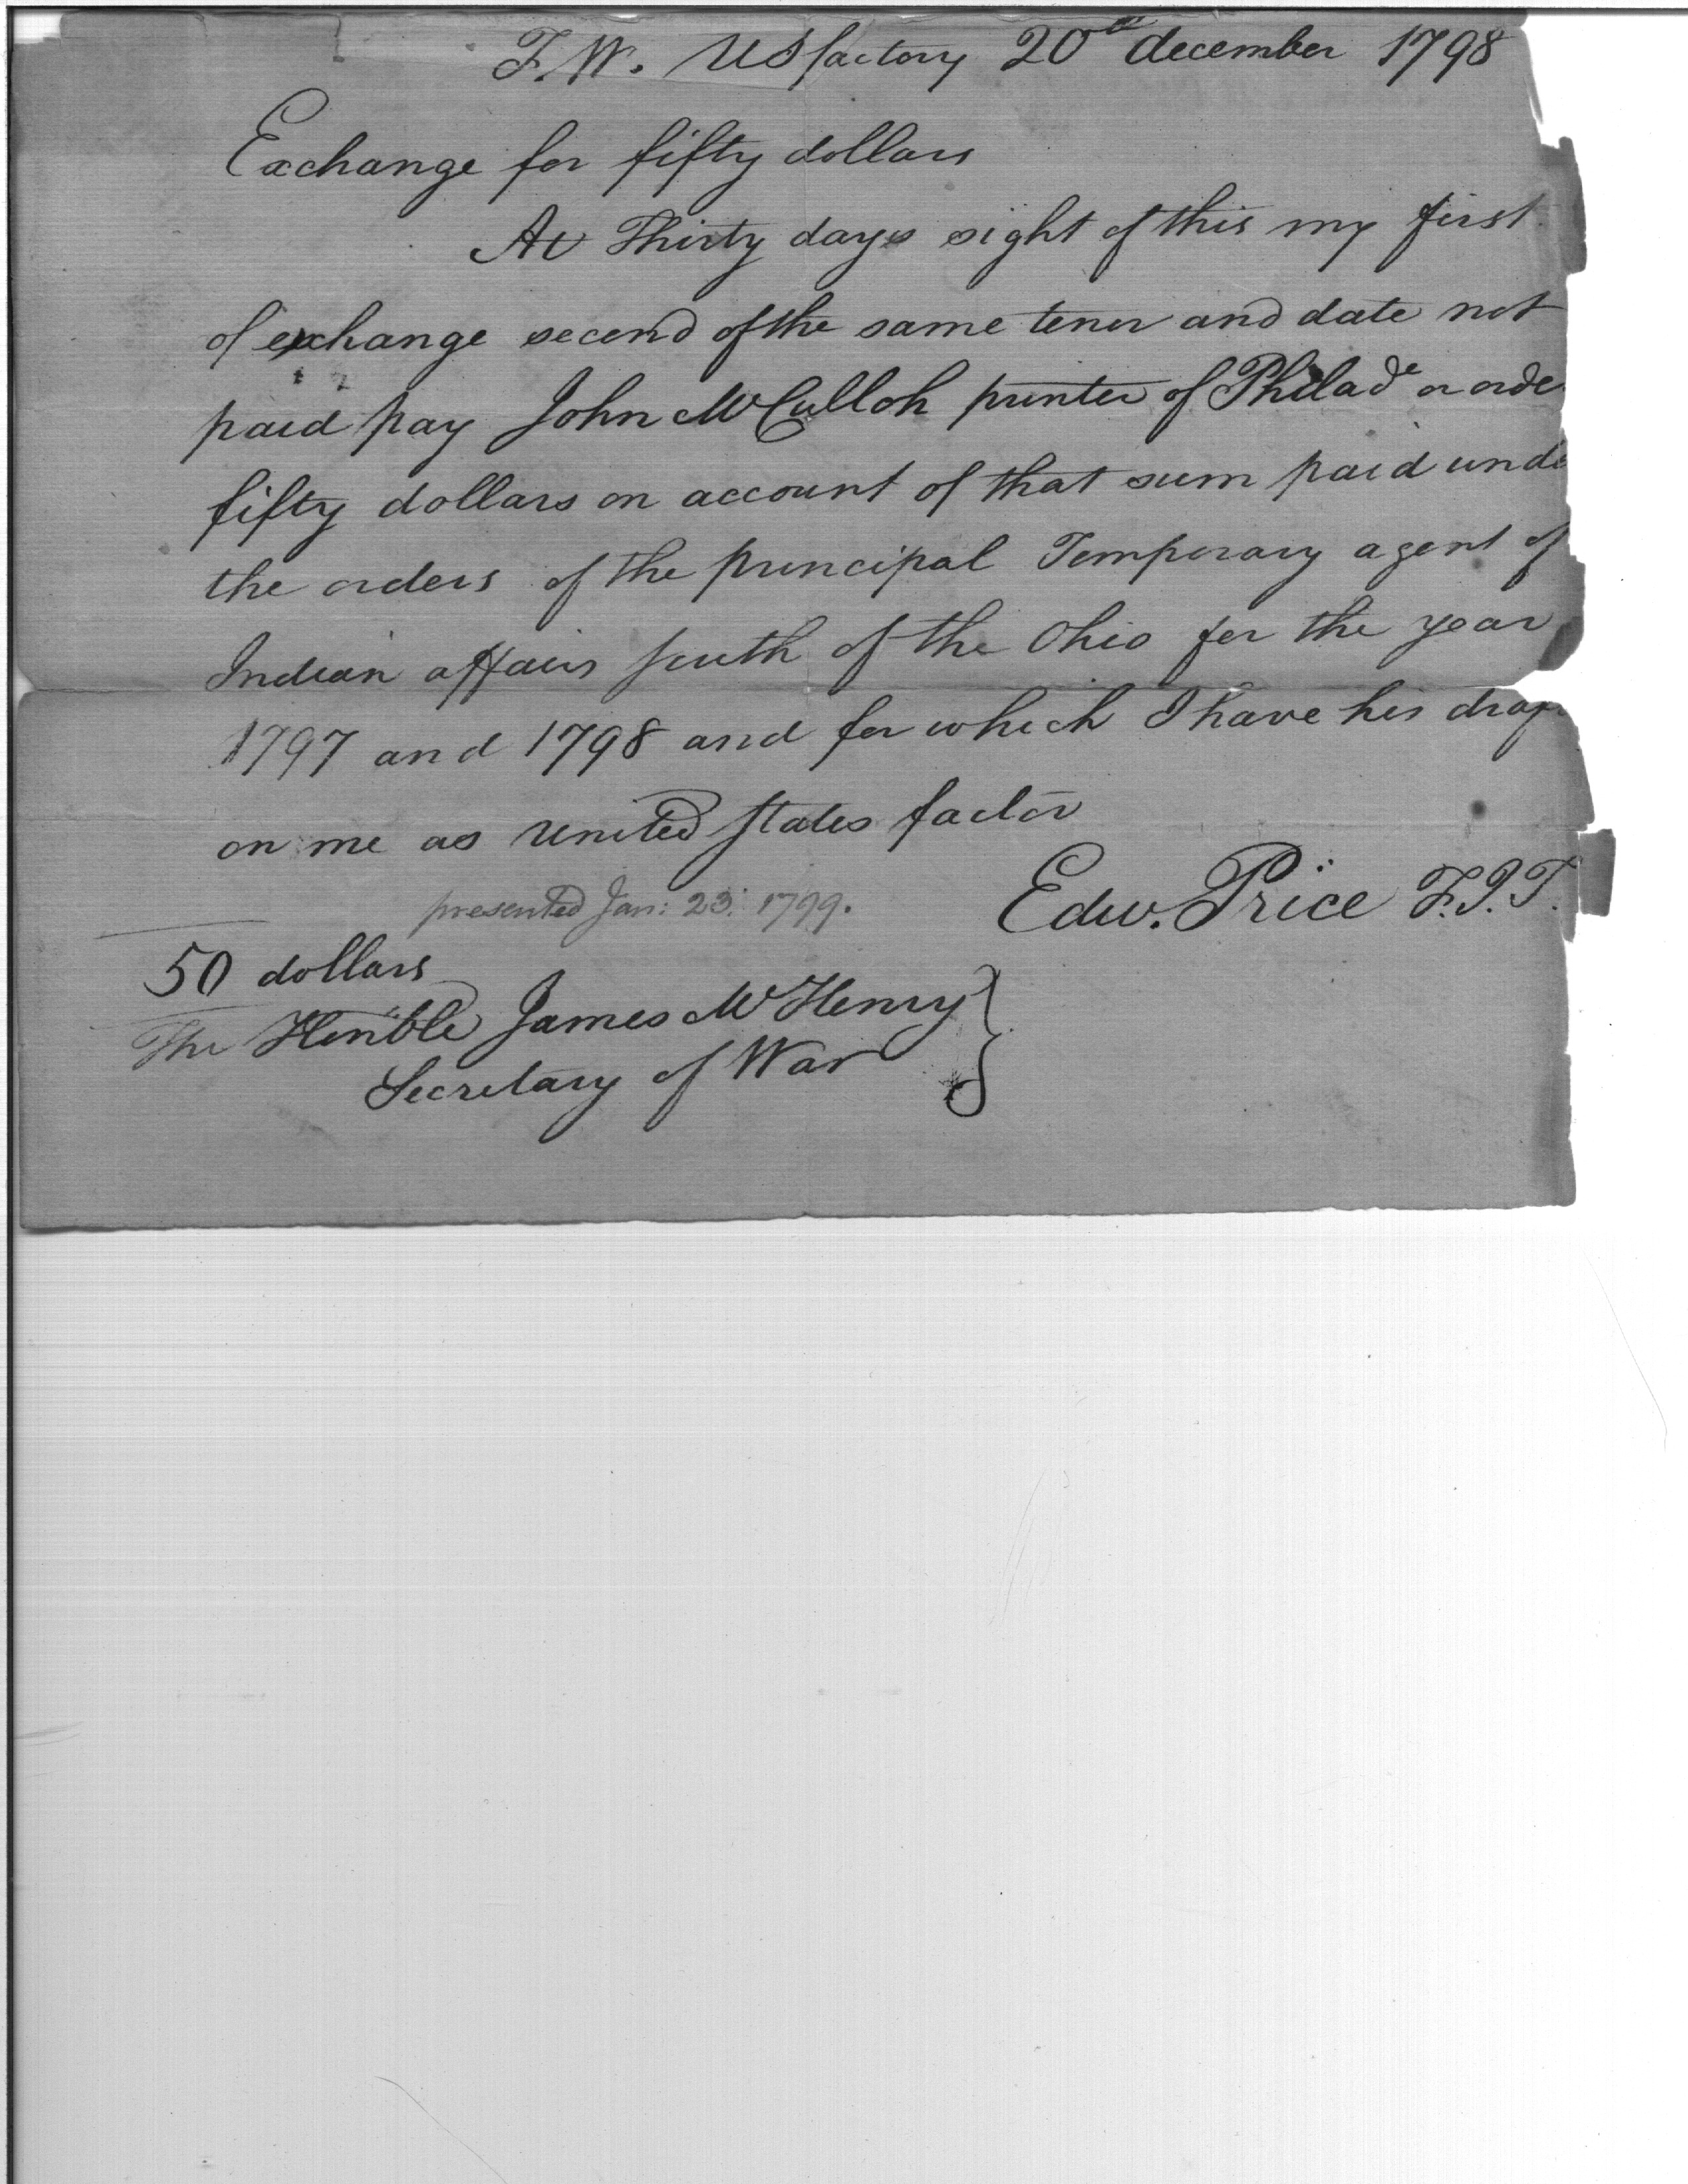 F. W. US factory 20th december 1798
Exchange for fifty dollars
At Thirty days sight of this my first
of exchange second of the same tenor and date not
paid pay John McCulloh printer of Philade or orde
fifty dollars on account of that sum paid unde
the orders of the principal Temporary agent of
Indian affairs south of the Ohio for the year
1797 and 1798 and for which I have his draf
on me as United States factor
presented Jan: 23: 1799.
Edw. Price F.I.T.
50 dollars
The Honble James McHenry
Secretary of War